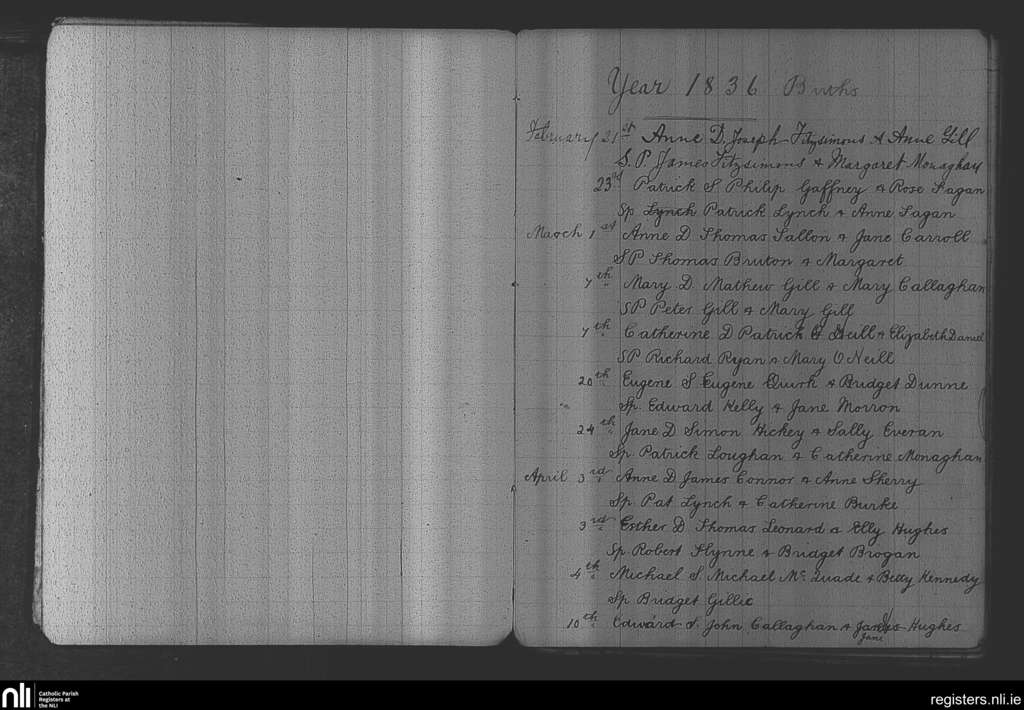 Year 1836 Births
February 21st Anne D. Joseph Fitzsimons & Anne Gill
S. P James Fitzsimons & Margaret Monaghan
23rd Patrick S Philip Gaffney & Rose Fagan
Sp Lynch Patrick Lynch & Anne Fagan
March 1st Anne D Thomas Fallon & Jane Carroll
SP Thomas Bruton & Margaret
7th Mary D. Mathew Gill & Mary Callaghan
SP Peter Gill & Mary Gill
7th Catherine D Patrick & Elizabeth Daniel
SP Richard Ryan & Mary O Neill
20th Eugene S Eugene Quirk & Bridget Dunne
Sp. Edward Kelly & Jane Morron
24th Jane D Simon Hickey & Sally Everan
Sp. Patrick Loughan & Catherine Monaghan
April 3rd Anne D James Connor & Anne Sherry
Sp. Pat Lynch & Catherine Burke
3rd Esther D Thomas Leonard a Elly Hughes
Sp Robert Flynne & Bridget Brogan
4th Michael S. Michael Mc Quade & Betty Kennedy
Sp. Bridget Gillic
10th Edward S. John Callaghan & James Hughes
Jane
nli
Catholic Parish
Registers at
the NLI
registers.nli.ie